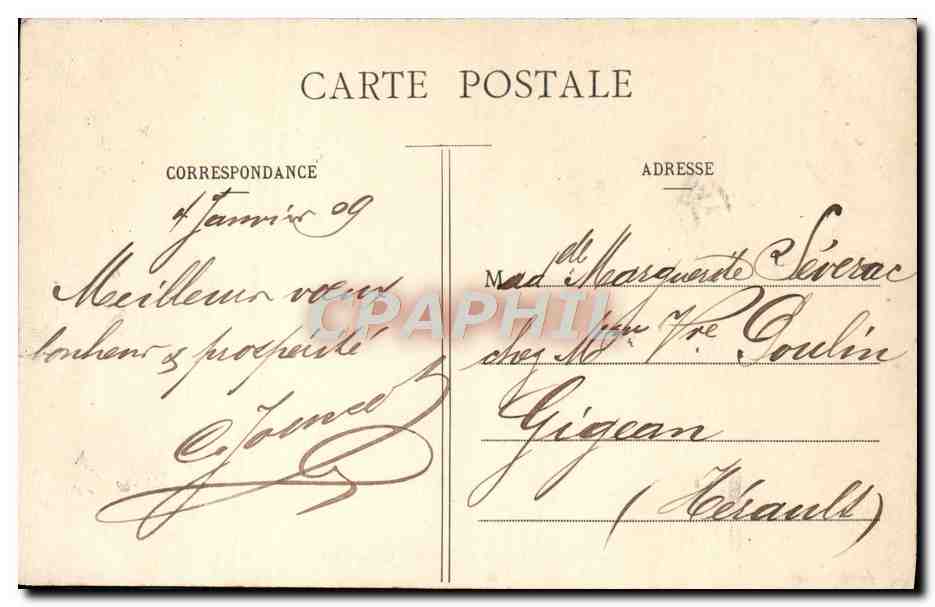 CARTE POSTALE
CORRESPONDANCE
4 Janvier 09
Meilleurs vœux
bonheur & prospérité
ADRESSE
Madelle Marguerite Séverac
chez Mme Vve Poulin
Gigean
(Hérault)
CPAPHIL